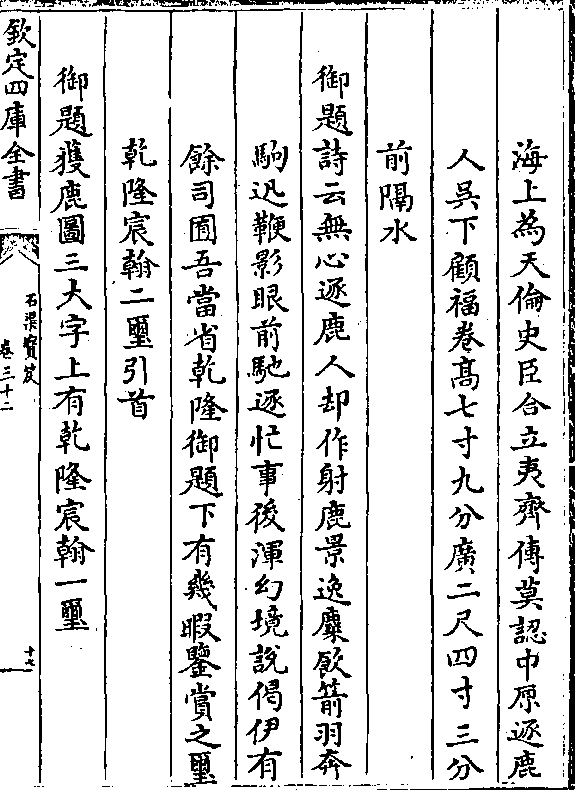 海上為天倫史臣合立夷齊傳莫認中原逐鹿
人呉下顧福卷髙七寸九分廣二尺四寸三分
前隔水
御題詩云無心逐鹿人却作射鹿景逸麋飲箭羽奔
駒迅鞭影眼前馳逐忙事後渾幻境說偈伊有
餘司囿吾當省乾隆御題下有幾暇鑒賞之璽
乾隆宸翰二璽引首
御題獲鹿圖三大字上有乾隆宸翰一璽
欽定四庫全書
石渠寳笈
卷三十二
十七